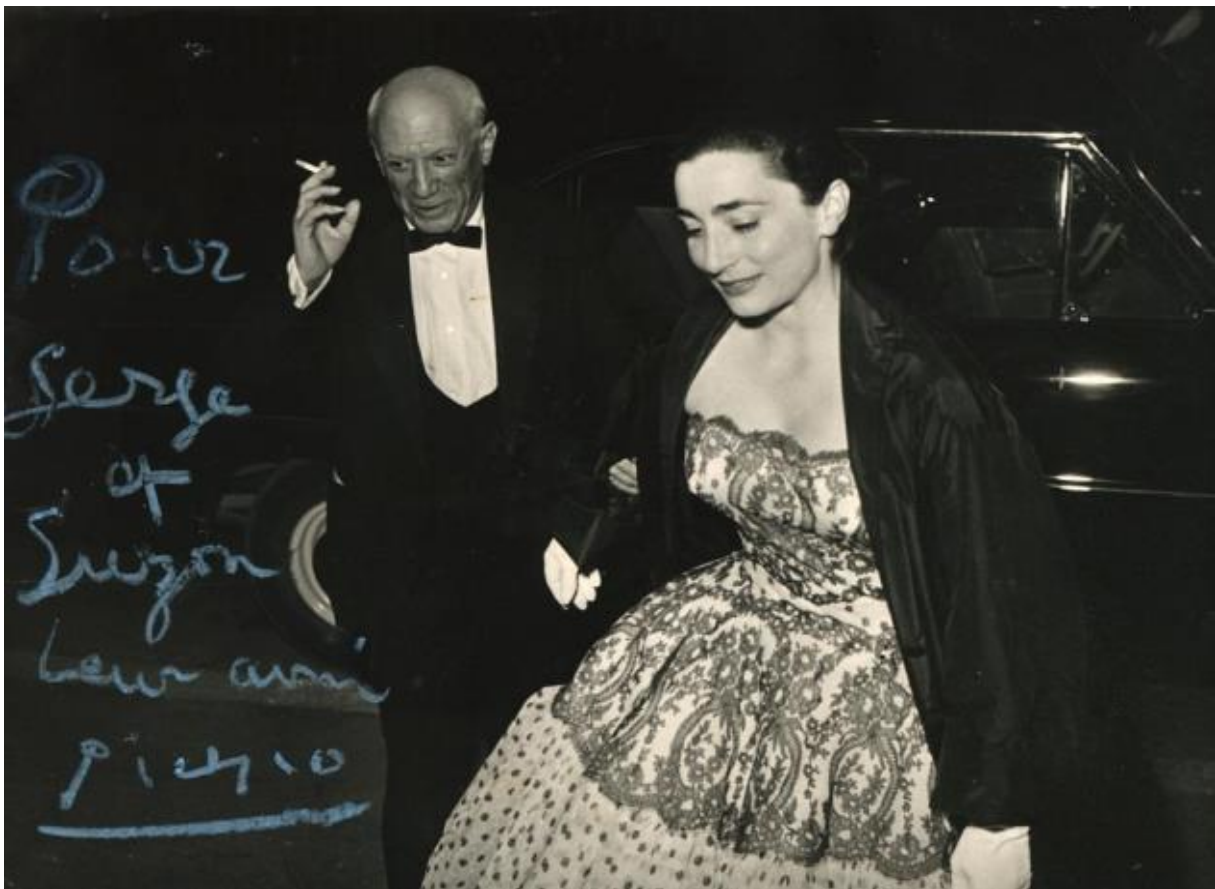 Pour
Serge
et
Suzon
Leur ami
Picasso